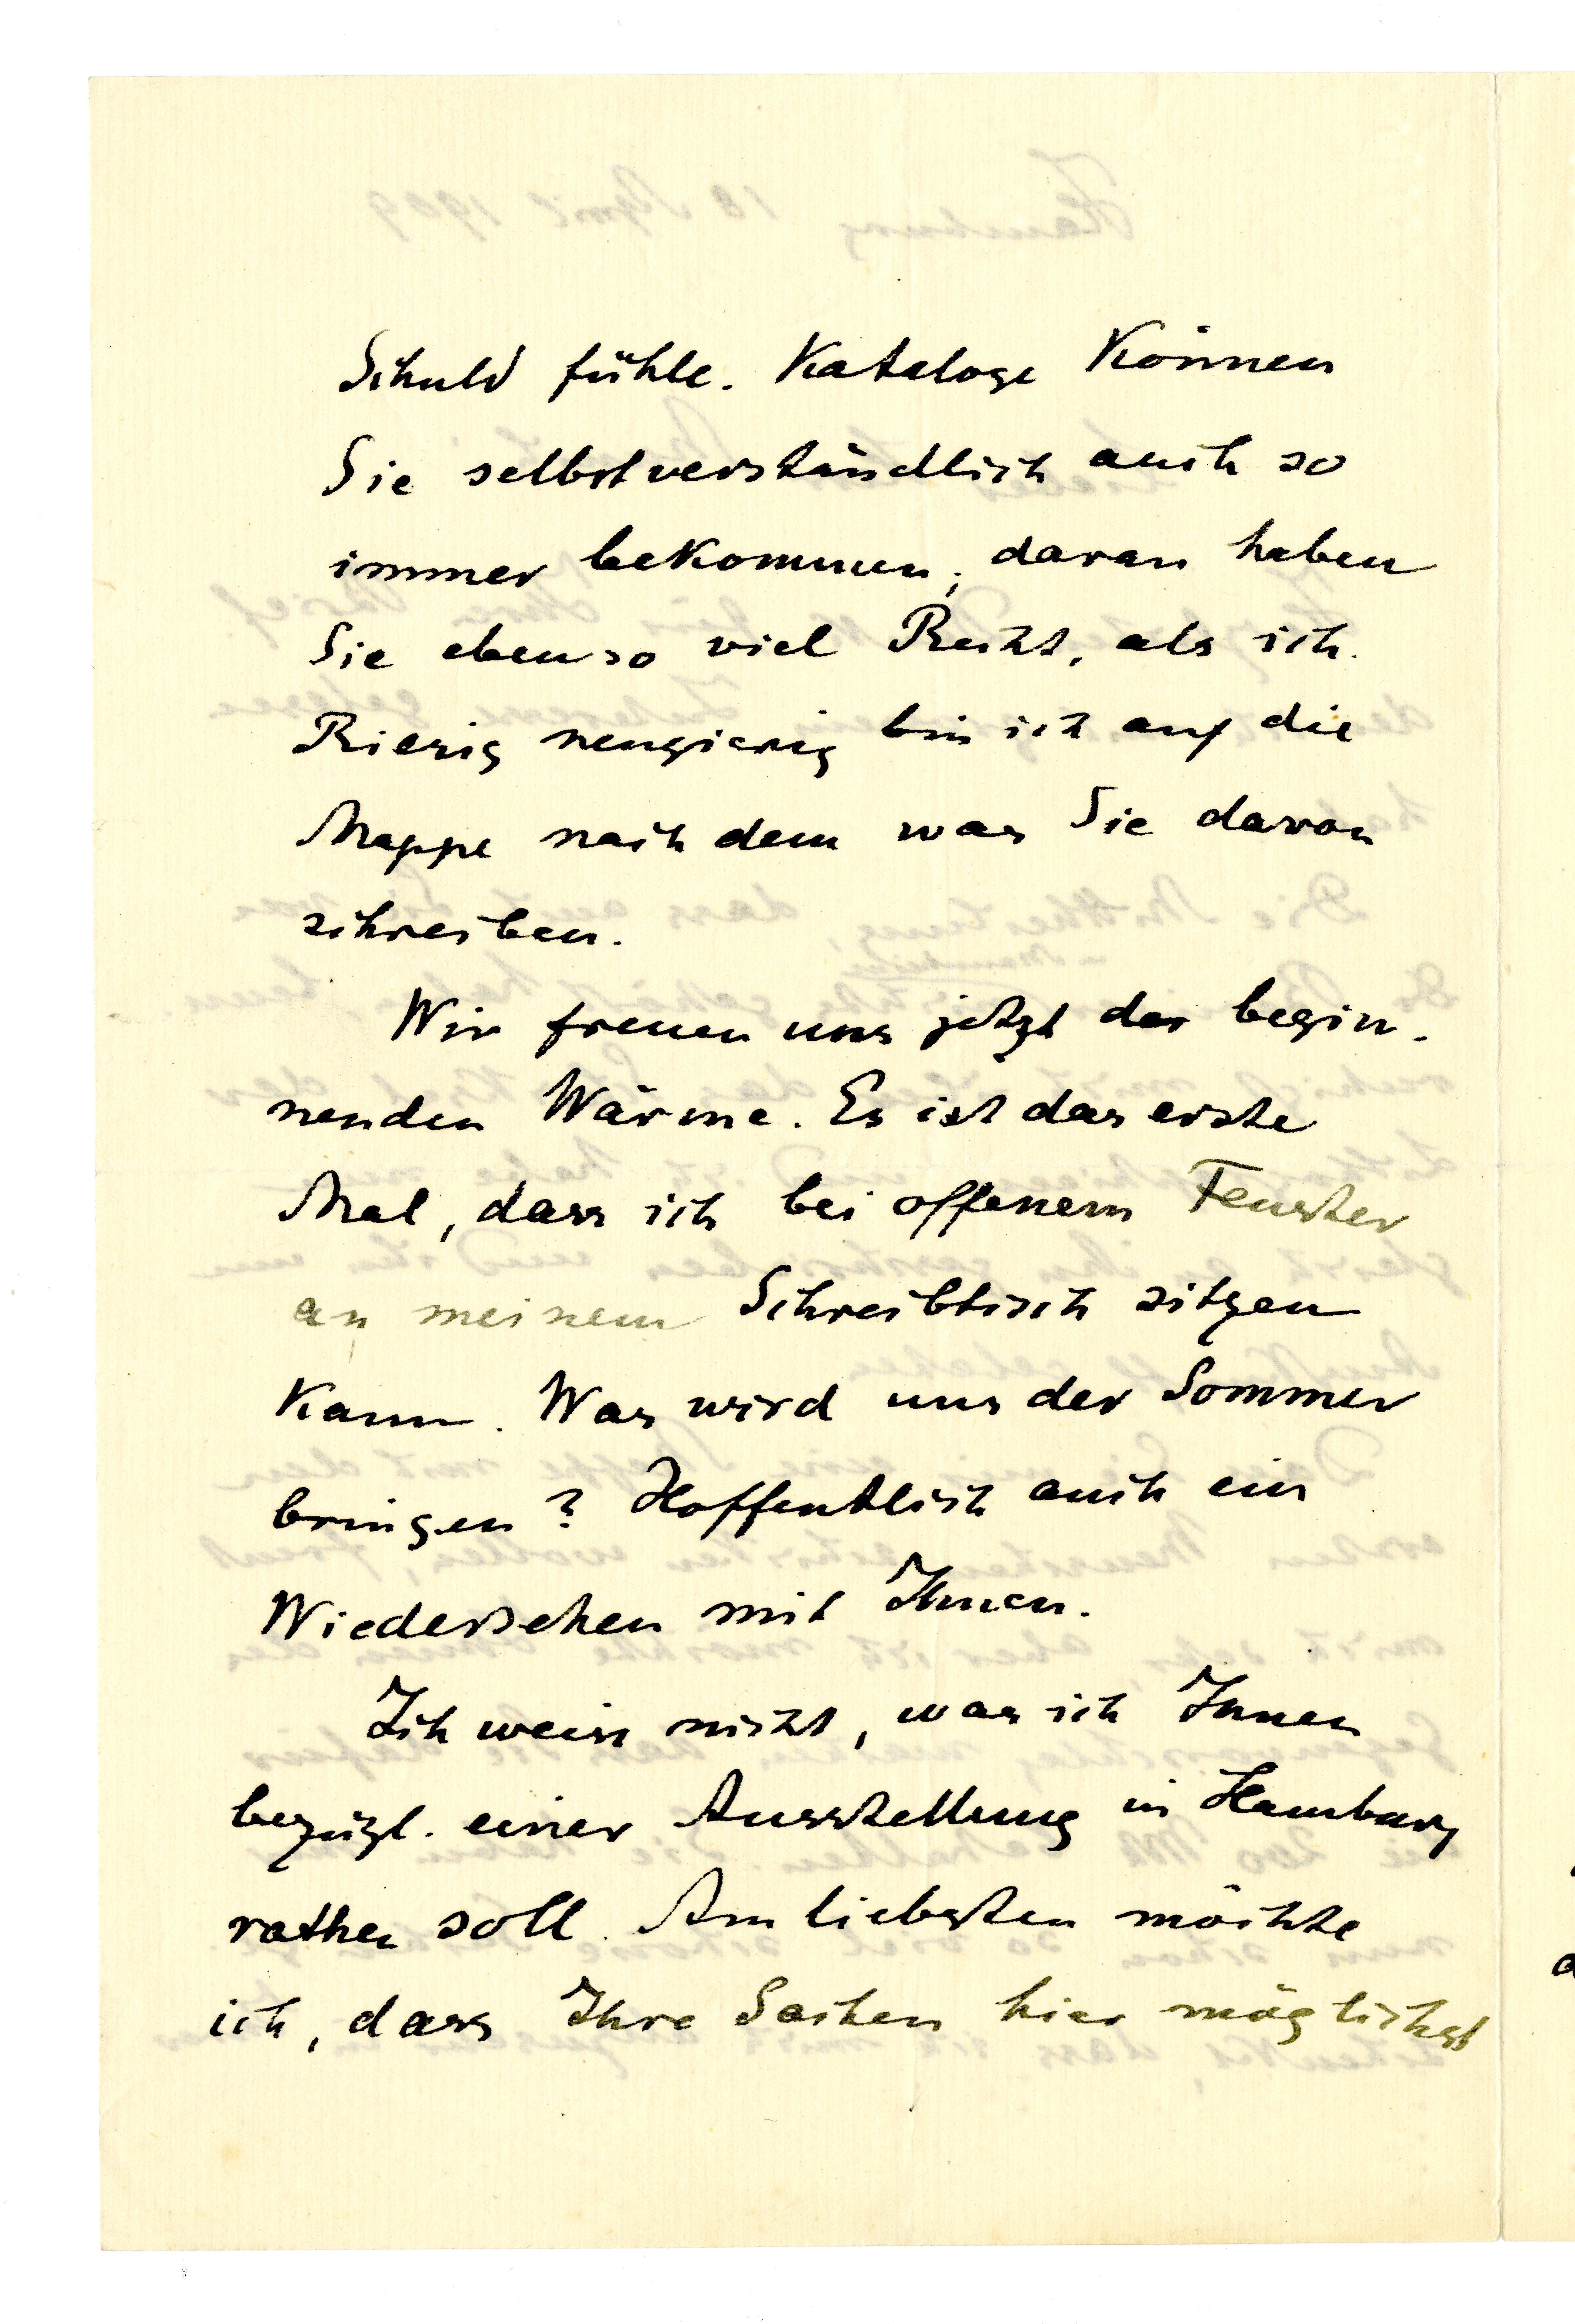 Schuld fühle. Kataloge können
Sie selbstverständlich auch so
immer bekommen; daran haben
Sie ebenso viel Recht, als ich.
Riesig neugierig bin ich auf die
Mappe nach dem was Sie davon
schreiben.
Wir freuen uns jetzt der begin-
nenden Wärme. Es ist das erste
Mal, dass ich bei offenem Fenster
an meinem Schreibtisch sitzen
kann. Was wird uns der Sommer
bringen? Hoffentlich auch ein
Wiedersehen mit Ihnen.
Ich weiss nicht, was ich Ihnen
bezügl. einer Ausstellung in Hamburg
rathen soll. Am liebsten möchte
ich, dass Ihre Sachen hier möglichst